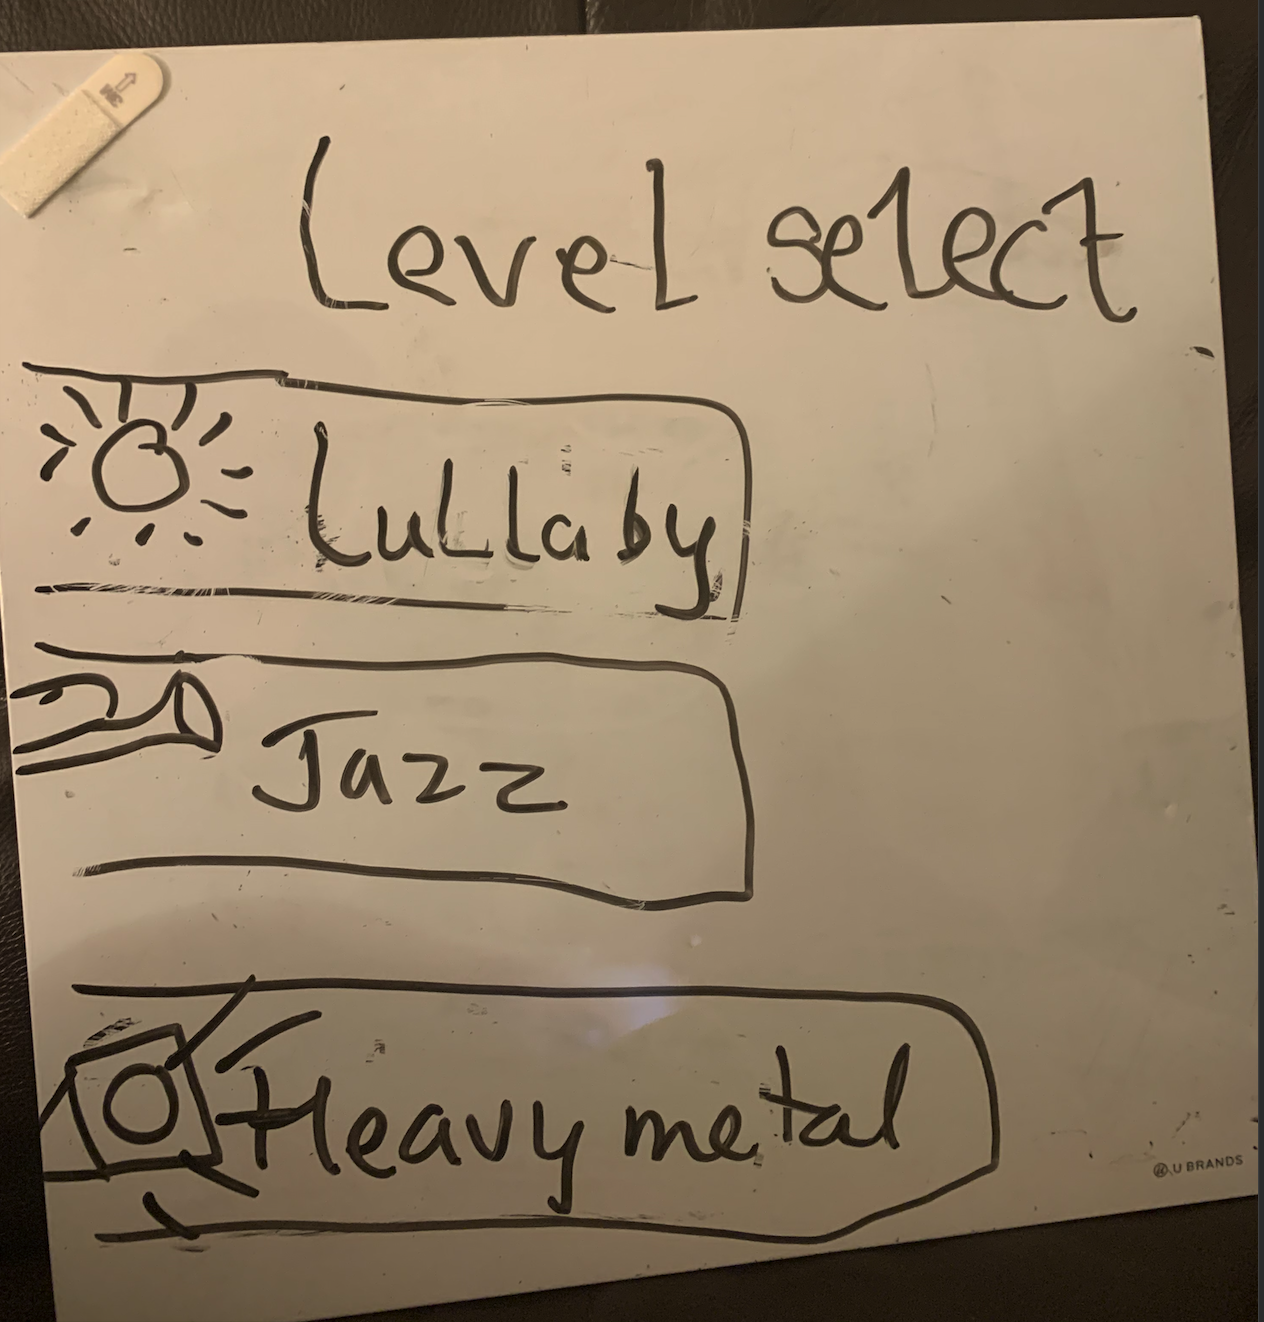 Level select
Lullaby
Jazz
Heavy metal
U BRANDS